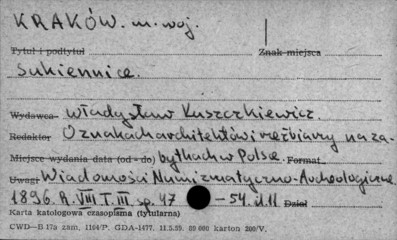 KRAKÓW. m. woj.
Tytuł i podtytuł Znak miejsca
Sukiennice.
Wydawca Władysław Łuszczkiewicz.
Redaktor O znakach architektów i rzeźbiarzy na za-
Miejsce wydania data (od - do) bytkach w Polsce. Format
Uwagi Wiadomości Numizmatyczno-Archeologiczne
1896. R. VIII T. III sp. 47 - 54. il. 11 Dział
Karta katalogowa czasopisma (tytularna)
CWD—B 17a zam. 1104/P. GDA-1477. 11.5.55. 80 000 karton 200/V.